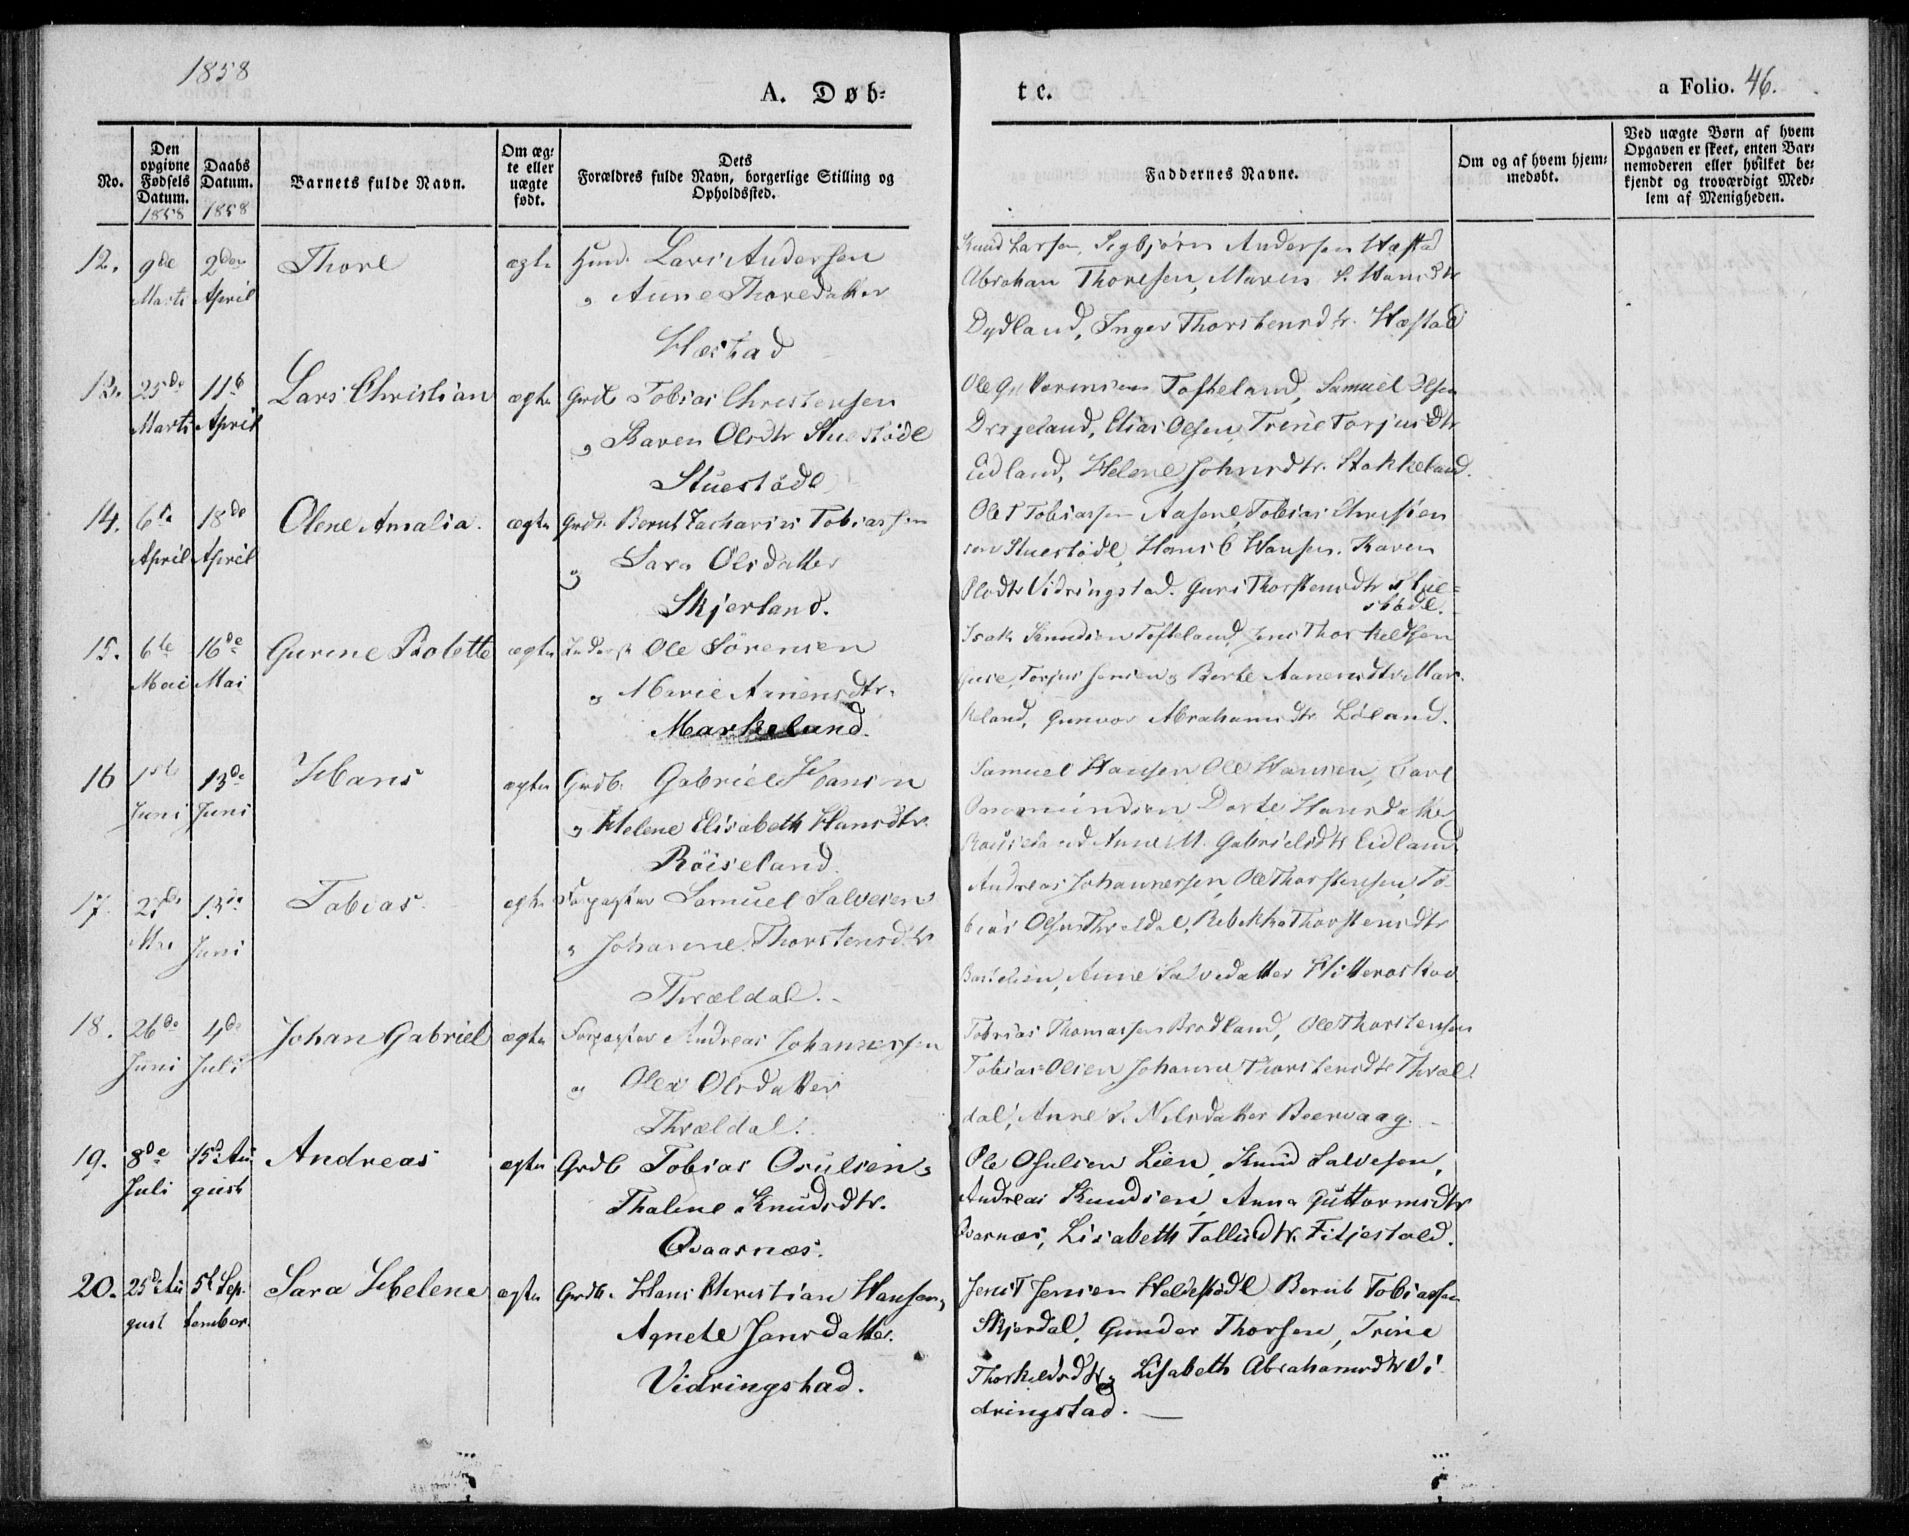 1858
A. Døb-
te.
a Folio. 46.
No.
Den opgivne Fødsels Datum. 1858
Daabs Datum. 1858
Barnets fulde Navn.
Om ægte eller uægte født.
Dets Forældres fulde Navn, borgerlige Stilling og Opholdssted.
Faddernes Navne.
Om og af hvem hjemmedøbt.
Ved uægte Børn af hvem Opgaven er skeet, enten Barnemoderen eller hvilket bekjendt og troværdigt Medlem af Menigheden.
12. 9de 2den Thore ægte Lars Andersen
Marts April Anne Thoredatter
Hæstad
Knud Larsen, Sigbjørn Andersen Hæstad
Abraham Thoresen, Maren S. Hansdtr
Dydland, Inger Thorstensdtr. Hæstad
13. 25de 11te Lars Christian ægte Grdb Tobias Christensen
Marts April og Karen Olsdtr Stuestöde
Stuestöde
Ole Tofteland, Samuel Olsen
Drageland, Elias Olsen, Trine Torjusdtr
Eidland, Helene Johnsdtr. Stakkeland.
14. 6te 18de Olene Amalia. ægte Grdb. Bernt Zacharias Tobiassen
April April og Sara Olsdatter
Skjerland.
Ole T Tobiassen Aasene, Tobias Christen
sen Stuestöde, Hans C Hansen. Karen
Olsdtr Vidringstad. Guri Thorstensdtr Stue-
stöde.
15. 6te 16de Gurine Bolette ægte Ole Sörensen
Mai Mai og Marie Anensdtr.
Markeland.
Isak Knudsen Tofteland, Jens Thorkeldsen
Torjus Jensen og Berte Aanensdtr Mar-
keland, Gunvor Abrahamsdtr Löland.
16 1ste 13de Hans ægte Grdb. Gabriel Hansen
Juni Juni og Helene Elisabeth Hansdtr.
Röiseland
Samuel Hansen Ole Hansen, Carl
Dorte Hansdatter
Röiseland Anne M. Gabrielsdtr Eidland
17. 2de 13de Tobias ægte Forpagter Samuel Salvesen
Juni og Johanne Thorstensdtr
Thrældal.
Andreas Johannessen, Ole Thorstensen, To-
bias Olsen Thrældal, Rebekka Thorstensdtr
Anne Salvedatter Hitterøskov
18. 26de 4de Johan Gabriel ægte Forpagter Andreas Johannessen
Juni Juli og Olea Olsdatter
Thrældal.
Tobias Thomassen Brodland, Ole Thorstensen
Tobias Olsen Johanne Thorstensdtr Thræl-
dal, Anne S. Nilsdatter Beervaag.
19. 8de 15de Au Andreas ægte Grdb Tobias Osulsen og
Juli gust Thaline Knudsdtr.
Qvaarnæs.
Ole Osulsen Lien, Knud Salvesen,
Andreas Knudsen, Anna Guttormsdtr
Qvarnæs, Lisabeth Tollisdtr. Fitjestöld.
20. 25de Au 5te Sep Sara Helene ægte Grdb. Hans Christian Hansen og
gust tember. Agnete Jensdatter.
Vidringstad.
Jens T Jensen Heldestöde Bernt Tobiassen
Skjerdal, Gunder Thorsen, Trine
Thorkeldsdtr og Lisabeth Abrahamsdtr Vi
dringstad.